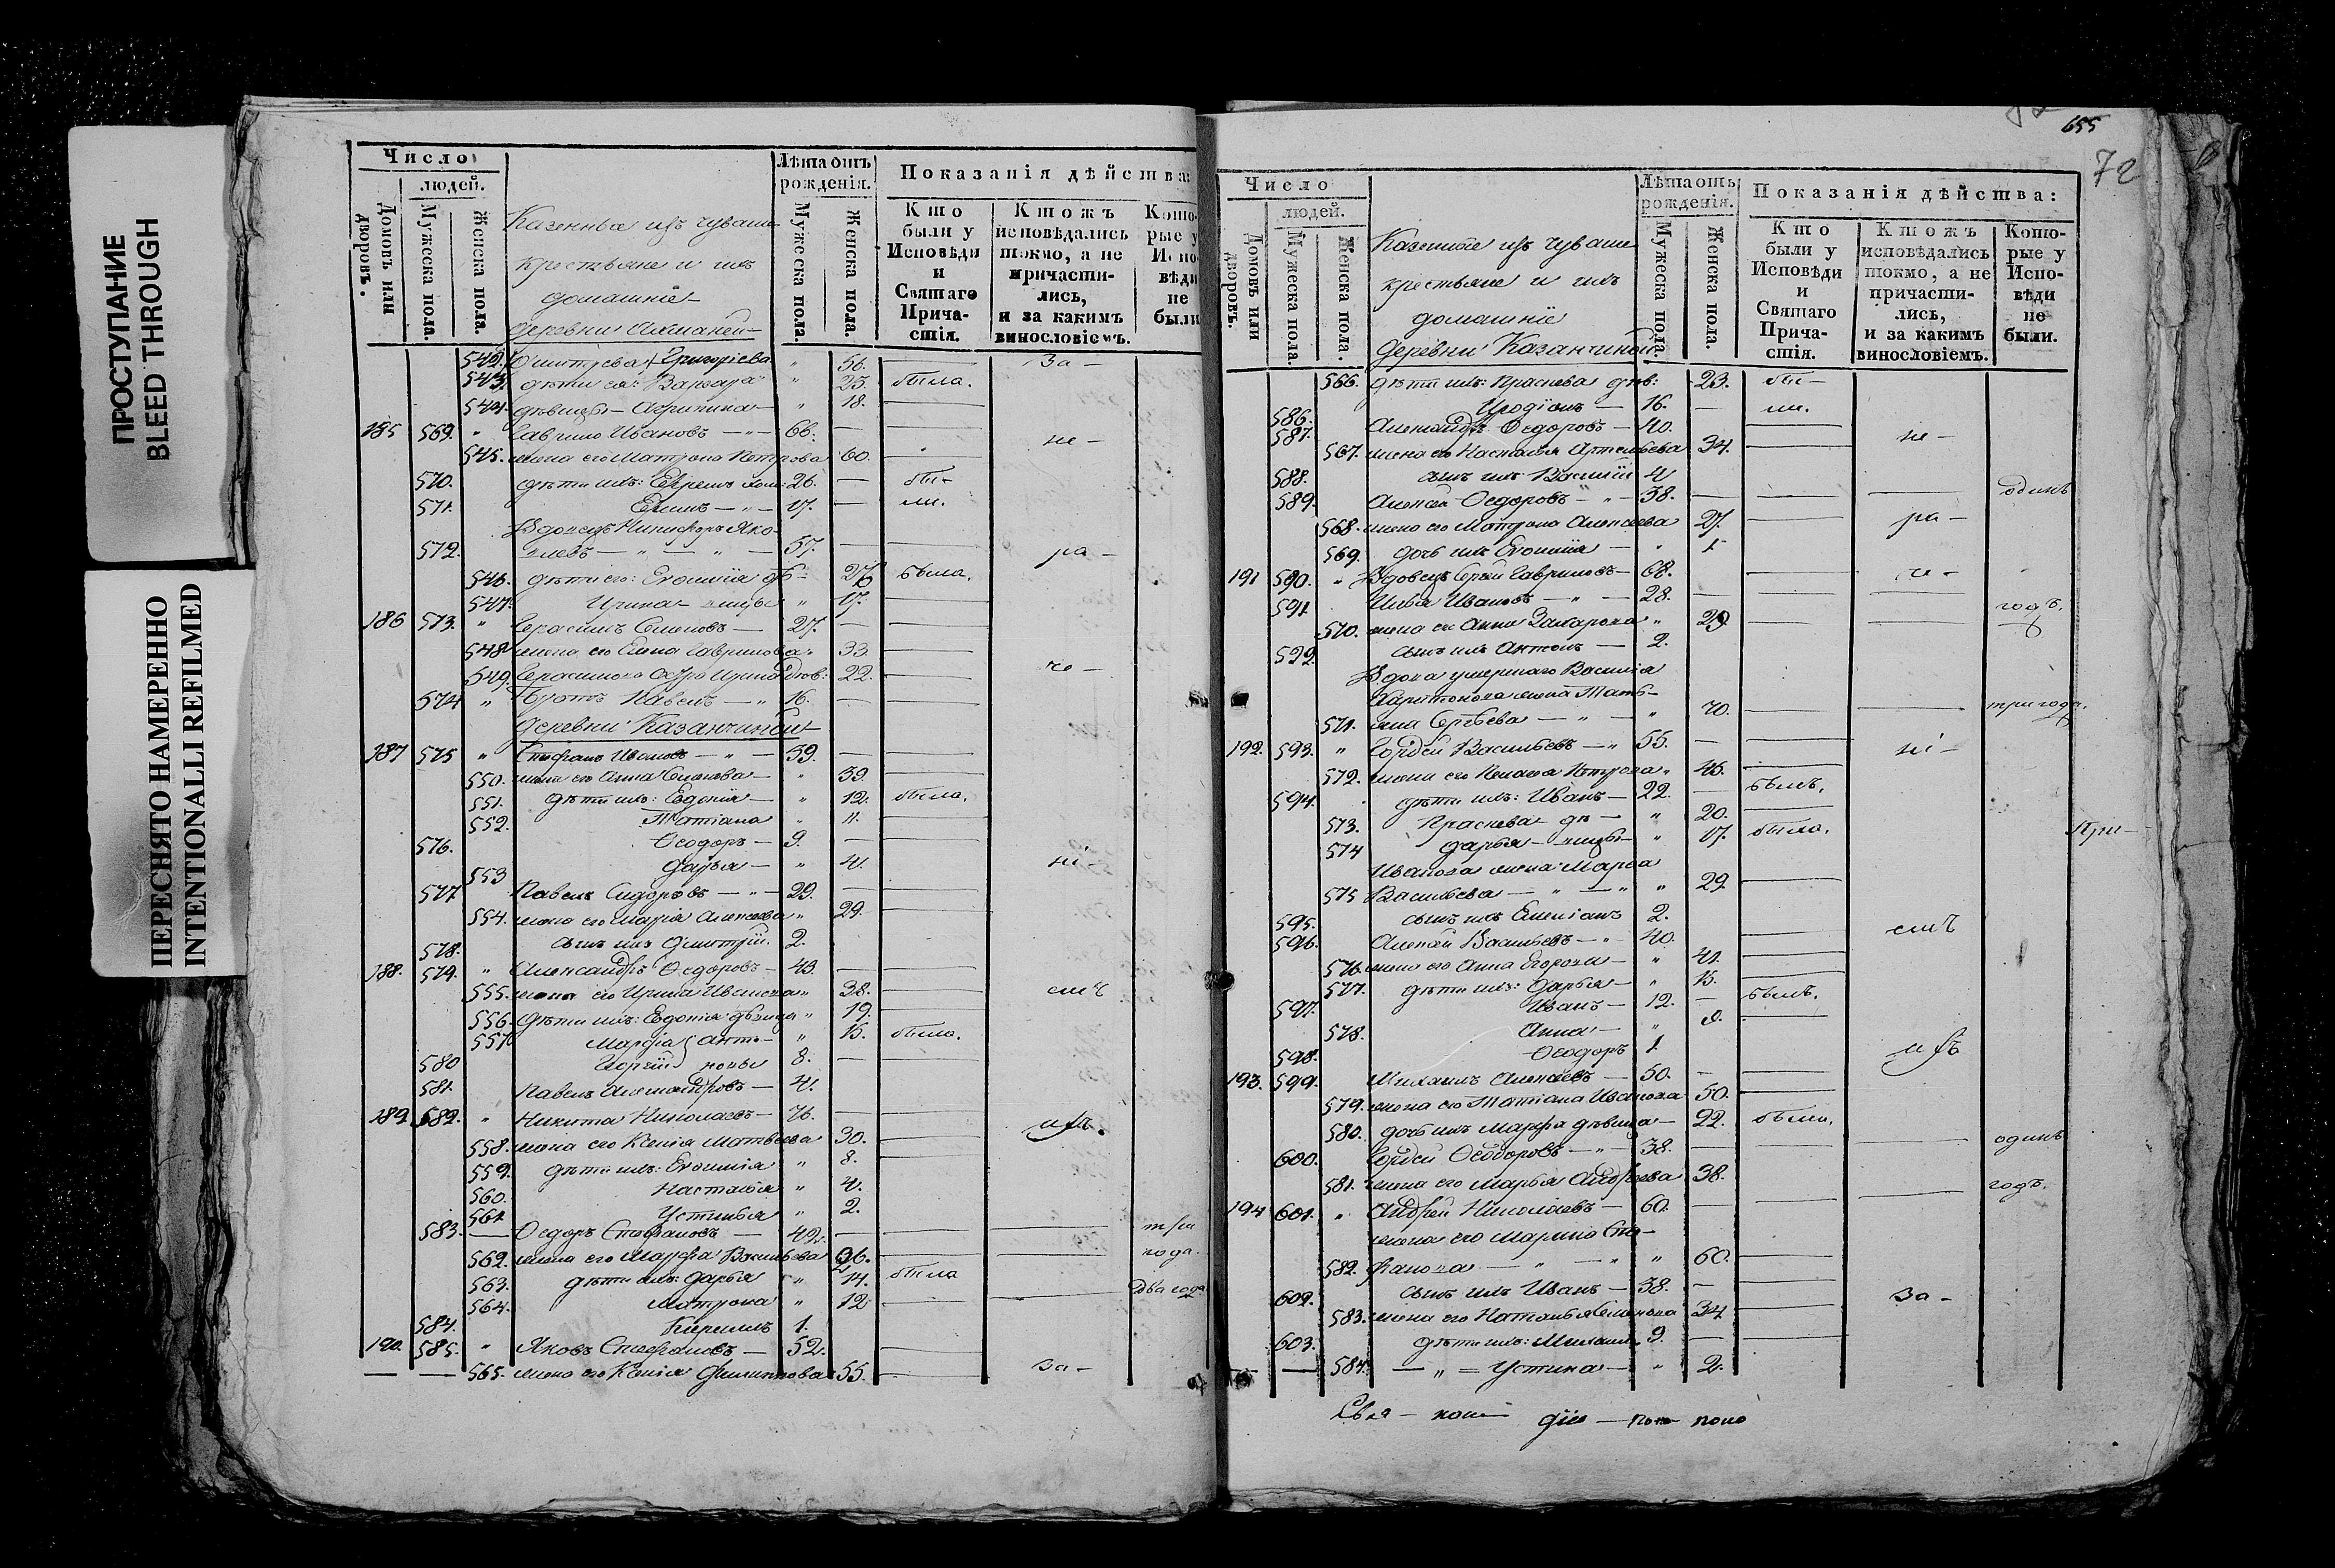 ПРОСТУПАНИЕ
BLEED THROUGH
ПЕРЕСНЯТО НАМЕРЕННО
INTENTIONALLI REFILMED
Число
людей.
Домовъ или дворовъ.
Мужеска пола.
Женска пола.
Казенныя изъ чувашъ
крестьяне и ихъ
домашніе
деревни
Лѣта отъ рожденія.
Мужеска пола.
Женска пола.
Показанія дѣйства:
Кто были у Исповѣди и Святаго Причастія.
Ктожъ исповѣдались токмо, а не причастились, и за какимъ винословіемъ.
Которые у Исповѣди не были
542. Дмитріева Григоріева " 56. — За —
543. дѣти ея: Варвара " 23. была.
544. дѣвицы — Агрипина — " 18. —
185 569. " Гаврило Ивановъ — " — 66. — не —
545. жена его Матрона Петрова 60. —
570. дѣти ихъ: Ефремъ 26. — бы-
571. — " — 17. — ли.
Вдовецъ Никифоръ Яко-
572. влевъ — " — " — 57. — ра —
546. дѣти его: Евфимія дѣ- 27 была.
547. Ирина — вицы " 17. —
186 573. " Герасимъ Семеновъ — 27. —
548 жена его Елена Гаврилова " 33 —
549. Герасимова сестра Ирина 22. — че —
574 " Братъ Павелъ — " 16. —
деревни Казанчиной
187 575 " Стефанъ Ивановъ — " — 39. —
550. жена его Анна Семенова — " 39. —
551. дѣти ихъ: Евдокія — " 12. была.
552. Татіана " 11. —
576. Ѳеодоръ — 9. —
553 Дарья — " 4. ні —
577. Павелъ Сидоровъ — " — 29. —
554. жена его Марія Алексѣева " 29. —
578. сынъ ихъ Дмитрій. 2.
188. 579. " Александръ Ѳедоровъ — 43. —
555. жена его Ирина Иванова " 38. — емъ
556. дѣти ихъ: Евдокія дѣвица " 19. —
557 Марфа } Анти- " 15. была.
580 Георгій } повы 8. —
581. Павелъ Александровъ — 4.
189 582. " Никита Николаевъ — 76. —
558. жена его Ксенія Матвѣева 30. —
559. дѣти ихъ: Евфимія " 8. —
560. Настасія " 4. —
561 Устинья " 2.
583. — Ѳедоръ Стефановъ — 42. — три
562. жена его Марфа Васильева 36. — года.
563. дѣти ихъ: Дарья " 14. была
564. Матрона " 12 — два года
584. Кирилъ 1.
190. 585. " Яковъ Стефановъ — 52. —
565. жена его Ксенія Филиппова 55. — за —
655
72
Число
людей.
Домовъ или дворовъ.
Мужеска пола.
Женска пола.
Казенные изъ чувашъ
крестьяне и ихъ
домашніе
деревни Казанчиной
Лѣта отъ рожденія.
Мужеска пола.
Женска пола.
Показанія дѣйства:
Кто были у Исповѣди и Святаго Причастія.
Ктожъ исповѣдались токмо, а не причастились, и за какимъ винословіемъ.
Которые у Исповѣди не были.
566. дѣти ихъ: Прасковья дѣв: 23. бы —
586. Иродіонъ — 16. — ли.
587. Александръ Ѳедоровъ — 40. — не —
567. жена его Настасья Артемьева 34. —
588. сынъ ихъ Василій 4
589. Алексѣй Ѳедоровъ — " — 38. — одинъ
568. жена его Матрона Алексѣева 27. — ра —
569. дочь ихъ Евфимія — " 1
191 590. " Вдовецъ Сергѣй Гавриловъ — 68. — че —
591. Илья Ивановъ — " — 28. — годъ.
570. жена его Анна Захарова " 29. —
592. сынъ ихъ Антонъ — 2.
Вдова умершаго Василія
Харитонова жена Тать-
571. яна Сергѣева — " — " 70. — три года.
192. 593. " Гордѣй Васильевъ — " 55. — ні —
572. жена его Пелагея Петрова " 45. —
594. дѣти ихъ: Иванъ — 22. — былъ.
573. Прасковья дѣ — " 20. —
574 Дарья — вицы " 17. была. При —
Иванова жена Марфа
575 Васильева — " — " " 29. —
595. сынъ ихъ Емеліанъ 2.
596. Алексѣй Васильевъ — " 40. — емъ
576. жена его Анна Егорова — " 41. —
577. дѣти ихъ: Дарья — " 15. —
597. Иванъ — 12. — былъ.
578. Анна — " 9. —
598. Ѳеодоръ 1.
193. 599. Михаилъ Алексѣевъ — 50. —
579. жена его Татіана Иванова 50. —
580. дочь ихъ Марфа дѣвица — 22. была.
600. Гордѣй Ѳеодоровъ — " — 38. — одинъ
581. жена его Марья Андреева 38. — годъ.
194 601. " Андрей Николаевъ — 60. —
жена его Марина Сте-
582. фанова — " — " " 60. —
602. сынъ ихъ Иванъ — 38. — за —
583. жена его Наталья Семенова 34 —
603. дѣти ихъ: Михаилъ 9. —
584. — " = Устина — " 2.